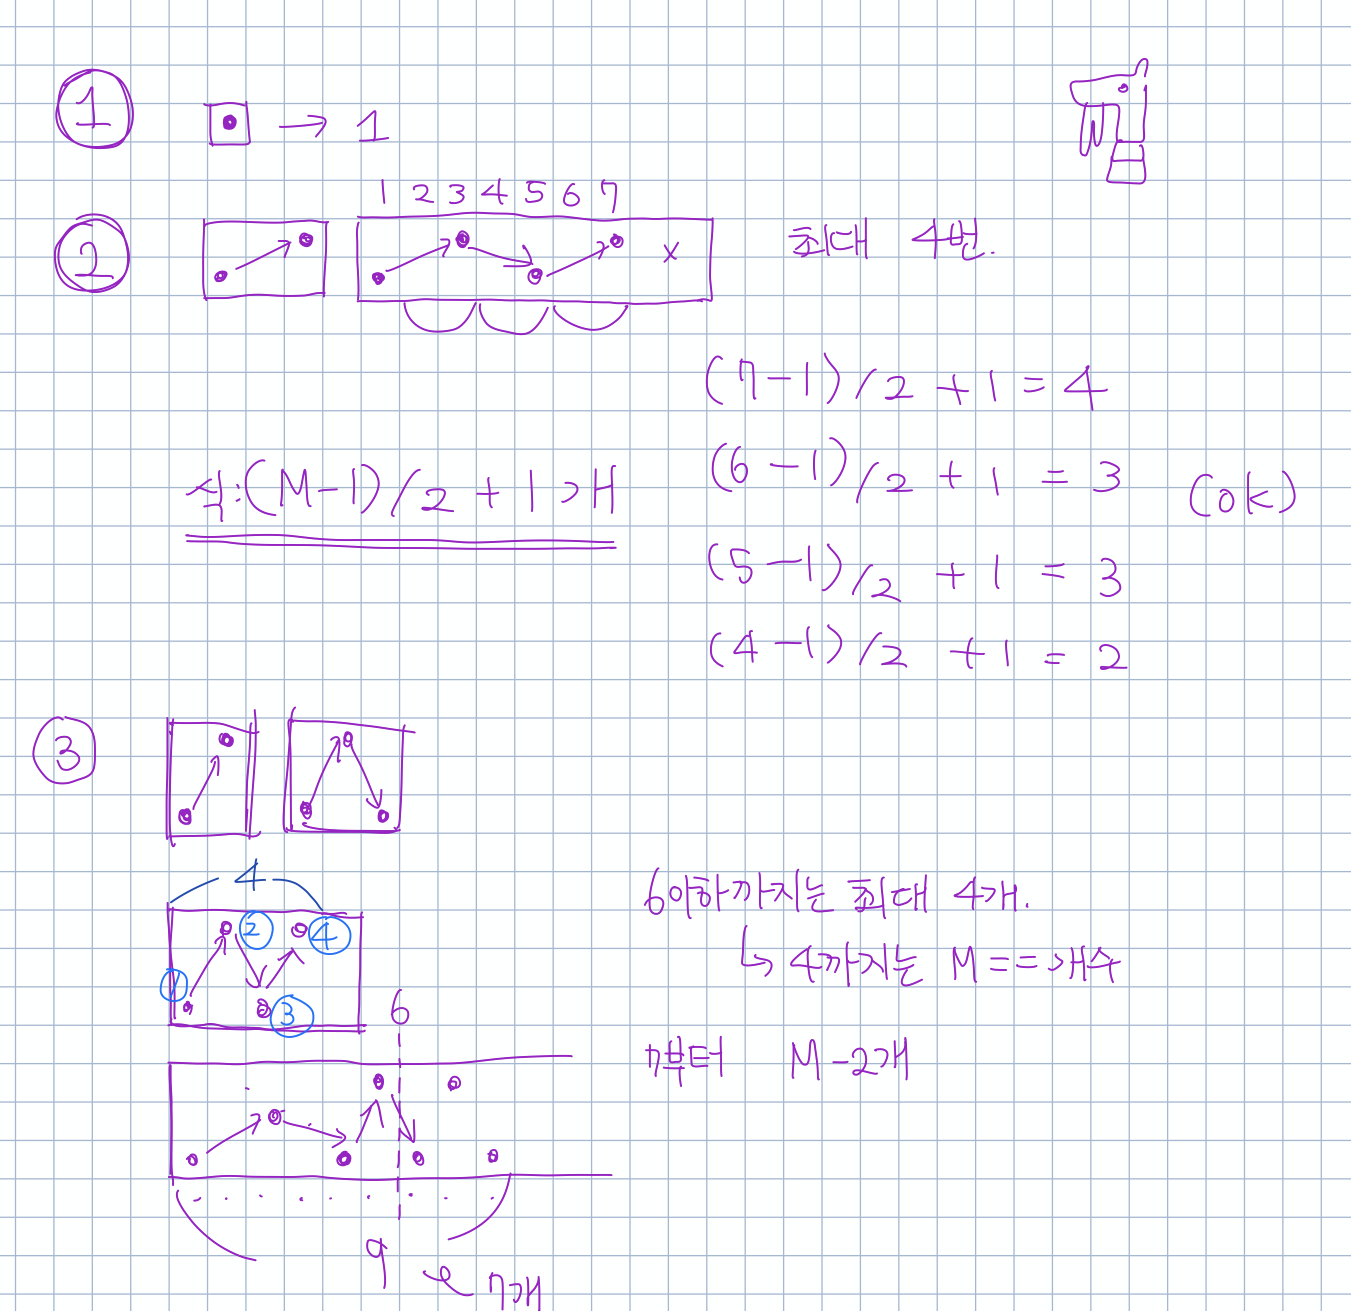 1
→ 1
1 2 3 4 5 6 7
2
x
최대 4번.
(7-1)/2 + 1 = 4
(6-1)/2 + 1 = 3
(ok)
식:(M-1)/2 + 1 > H
(5-1)/2 + 1 = 3
(4-1)/2 + 1 = 2
3
4
6이하까지는 최대 4개.
② ④
↳ 4까지는 M == 개수
1
③
6
7부터 M-2개
9
7개